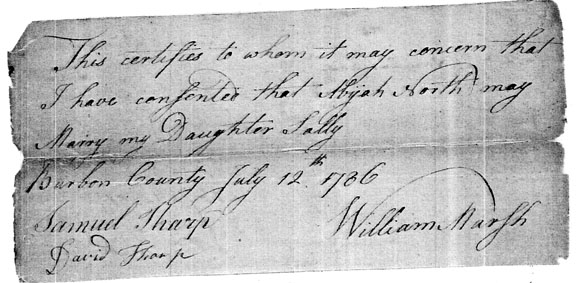 This certifies to whom it may concern that
I have consented that Abijah North may
Marry my Daughter Sally
Burbon County July 12th 1786
Samuel Sharp William Marsh
David Sharp